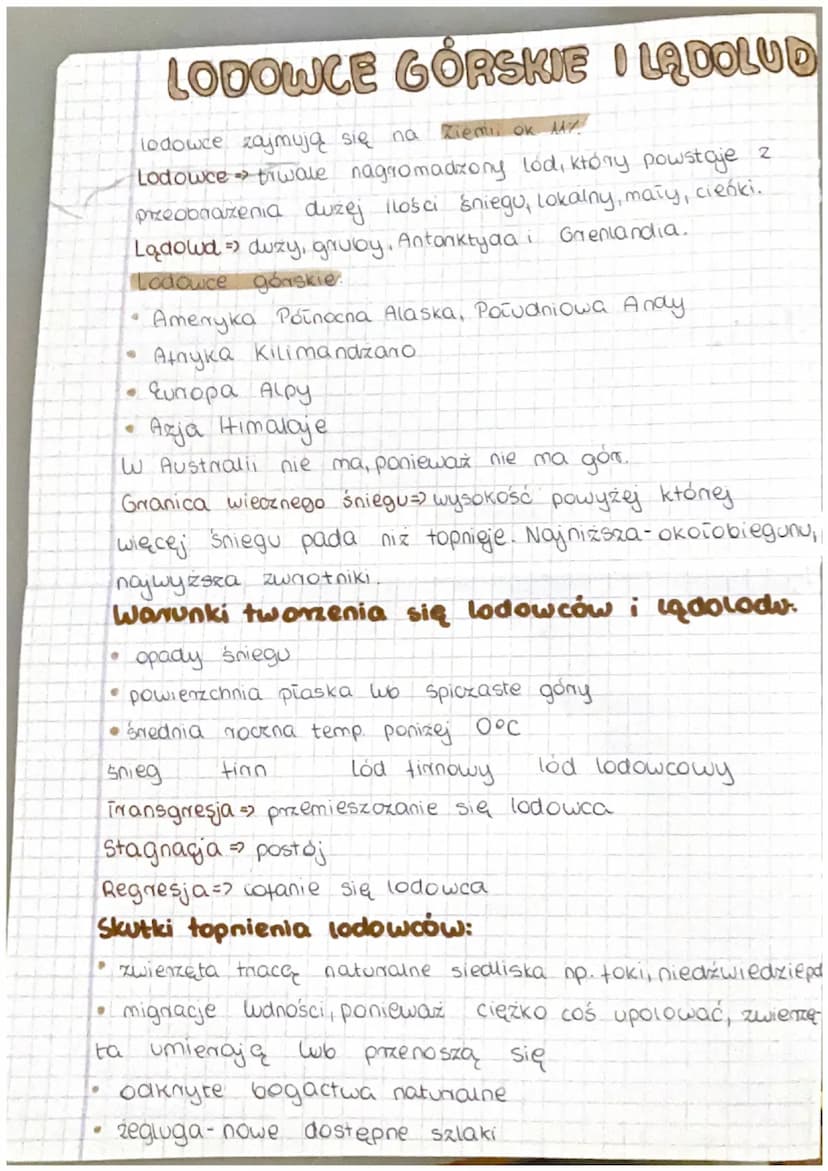 LODOWCE GÓRSKIE I LĄDOLUD
lodowce zajmują się na Ziemi ok 11%
Lodowce => trwale nagromadzony lód, który powstaje z
przeobrażenia dużej ilości śniegu, lokalny, mały, cieńki.
Lądowd => duży, gruby, Antarktyda i Grenlandia.
Lodowce górskie:
• Ameryka Północna Alaska, Południowa Andy
• Afryka Kilimandżaro
• Europa Alpy
• Azja Himalaje
W Australii nie ma, ponieważ nie ma gór.
Granica wiecznego śniegu => wysokość powyżej której
więcej śniegu pada niż topnieje. Najniższa - okołobieguny,
najwyższa zwrotniki.
Warunki tworzenia się lodowców i lądolodu.
• opady śniegu
• powierzchnia płaska lub spiczaste góry
• średnia roczna temp. poniżej 0°C
śnieg firn lód firnowy lód lodowcowy
Transgresja => przemieszczanie się lodowca
Stagnacja => postój
Regresja => cofanie się lodowca
Skutki topnienia lodowców:
• zwierzęta tracą naturalne siedliska np. foki, niedźwiedzie
• migracje ludności, ponieważ ciężko coś upolować, zwierzę-
ta umierają lub przenoszą się
• odkryte bogactwa naturalne
• żegluga - nowe dostępne szlaki